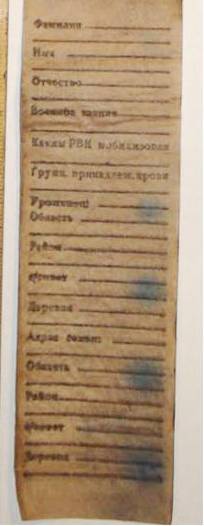 Фамилия
Имя
Отчество
Военное звание
Каким РВК мобилизован
Групп. принадлеж. крови
Уроженец:
Область
Район
с/совет
Деревня
Адрес семьи:
Область
Район
с/совет
Деревня